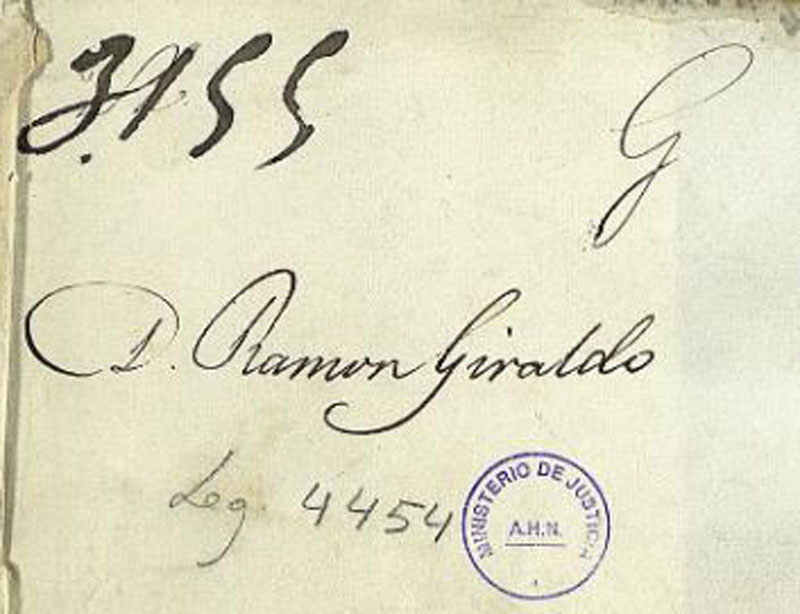 3955
G
D. Ramon Giraldo
Leg. 4454
MINISTERIO DE JUSTICIA
A.H.N.